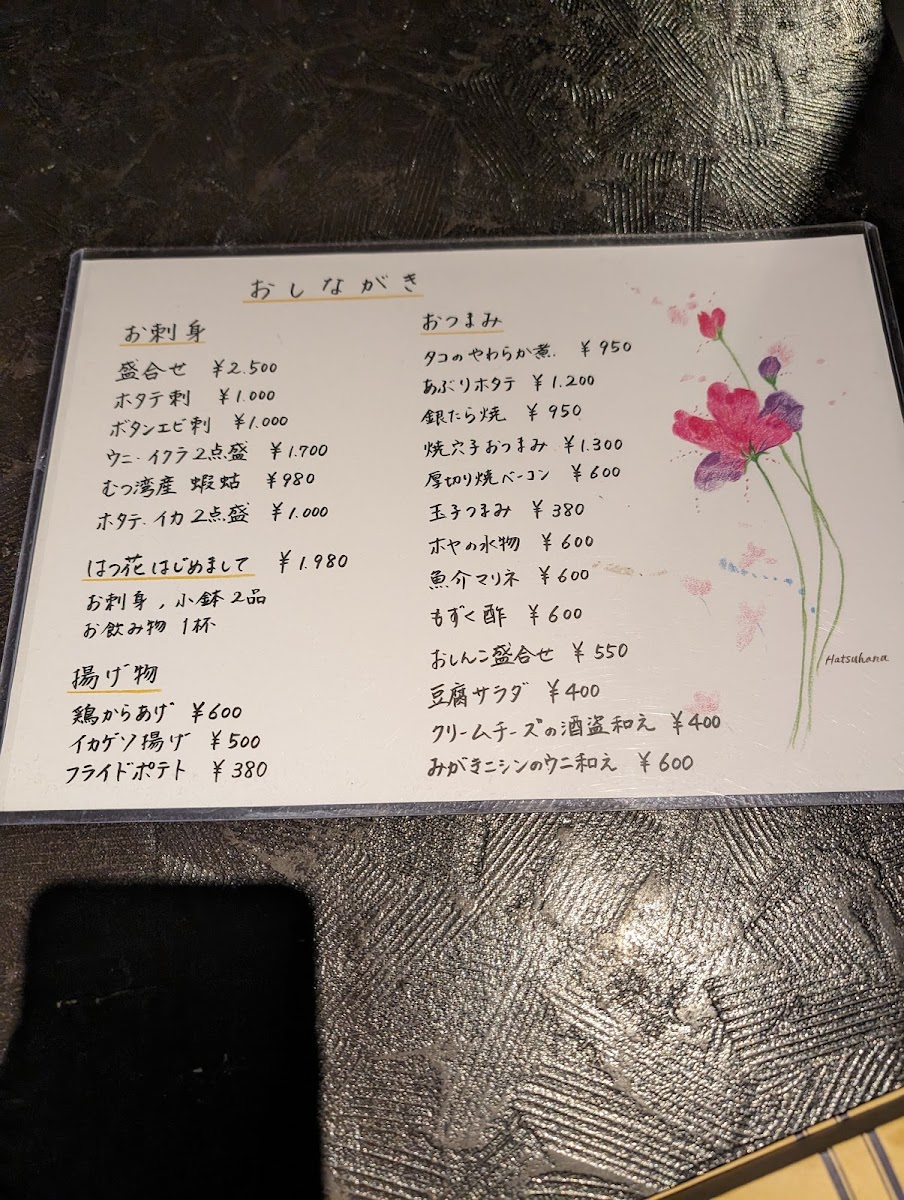 おしながき
お刺身
盛合せ ¥2.500
ホタテ刺 ¥1.000
ボタンエビ刺 ¥1.000
ウニ.イクラ2点盛 ¥1.700
むつ湾産 蝦蛄 ¥980
ホタテ.イカ2点盛 ¥1.000
はつ花はじめまして ¥1.980
お刺身,小鉢2品
お飲み物 1杯
揚げ物
鶏からあげ ¥600
イカゲソ揚げ ¥500
フライドポテト ¥380
おつまみ
タコのやわらか煮. ¥950
あぶりホタテ ¥1.200
銀たら焼 ¥950
焼穴子おつまみ ¥1.300
厚切り焼ベーコン ¥600
玉子つまみ ¥380
ホヤの水物 ¥600
魚介マリネ ¥600
もずく酢 ¥600
おしんこ盛合せ ¥550
豆腐サラダ ¥400
クリームチーズの酒盗和え ¥400
みがきニシンのウニ和え ¥600
Hatsuhana